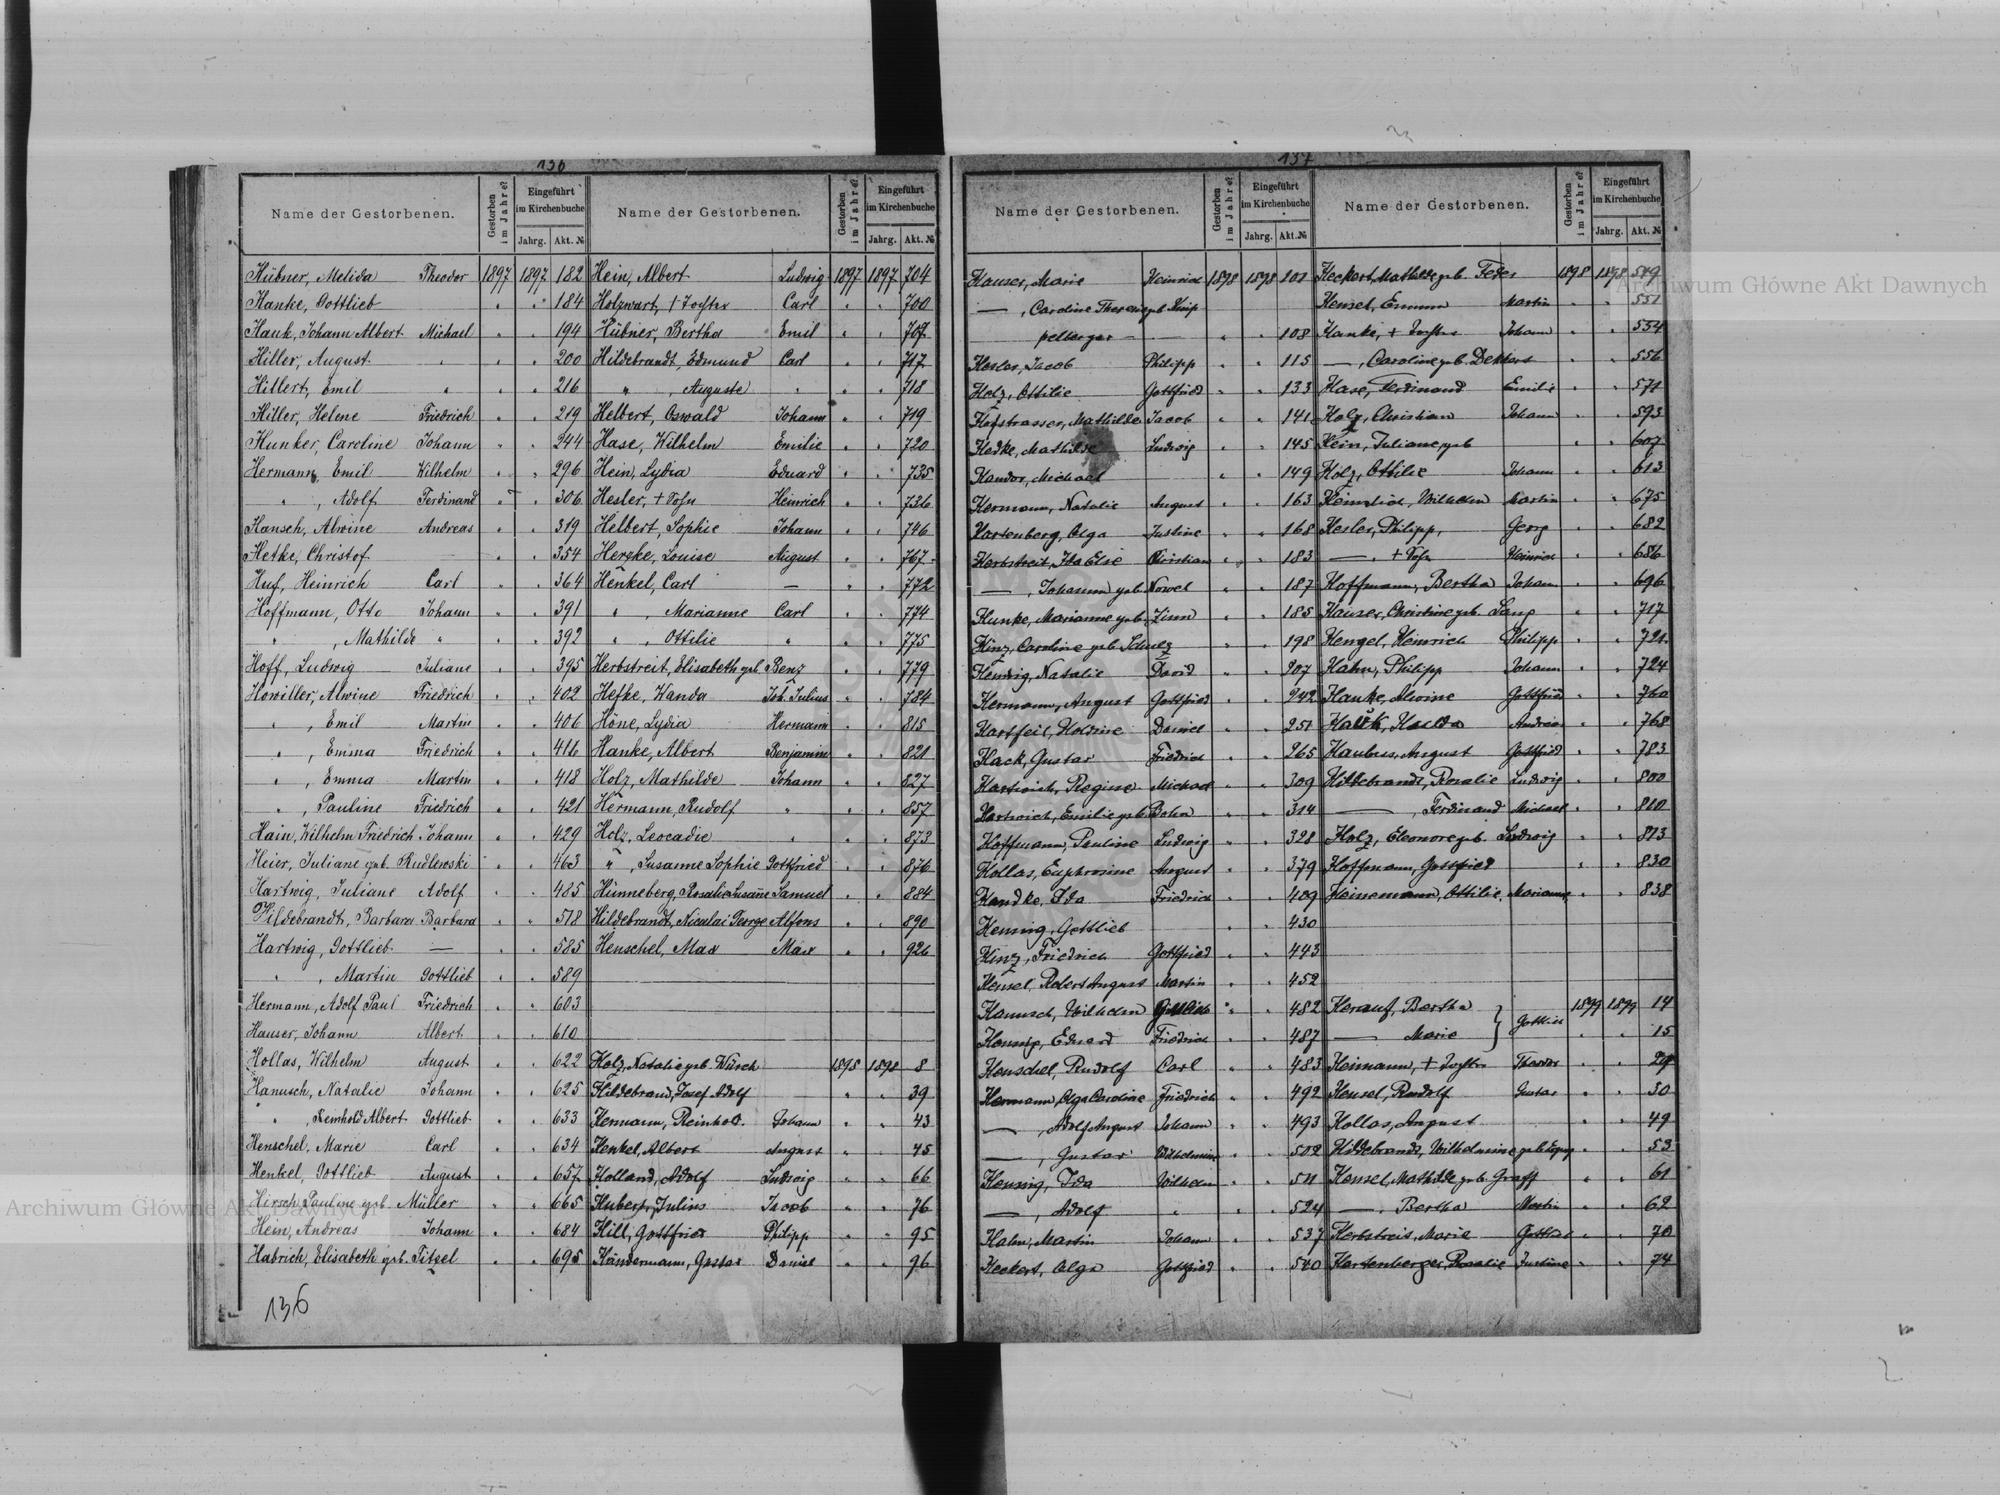 136
Name der Gestorbenen. Gestorben im Jahre? Eingeführt im Kirchenbuche Jahrg. Akt. №
Hübner, Melida Theodor 1897 1897 182
Hanke, Gottlieb " " 184
Hauk, Johann Albert Michael " " 194
Hiller, August " " " 200
Hillert, Emil " " " 216
Hiller, Helene Friedrich " " 219
Hunker, Caroline Johann " " 244
Hermann, Emil Wilhelm " " 296
" , Adolf Ferdinand " " 306
Hansch, Alwine Andreas " " 319
Hetke, Christof — " " 354
Huf, Heinrich Carl " " 364
Hoffmann, Otto Johann " " 391
" , Mathilde " " " 392
Hoff, Ludwig Juliane " " 395
Howiller, Alwine Friedrich " " 402
" , Emil Martin " " 406
" , Emma Friedrich " " 416
" , Emma Martin " " 418
" , Pauline Friedrich " " 421
Hain, Wilhelm Friedrich Johann " " 429
Heier, Juliane geb. Rudlewski " " 463
Hartwig, Juliane Adolf " " 485
Hildebrandt, Barbara Barbara " " 518
Hartwig, Gottlieb — " " 585
" , Martin Gottlieb " " 589
Hermann, Adolf Paul Friedrich " " 603
Hauser, Johann Albert " " 610
Hollas, Wilhelm August " " 622
Hanusch, Natalie Johann " " 625
" , Reinhold Albert Gottlieb " " 633
Henschel, Marie Carl " " 634
Henkel, Gottlieb August " " 657
Hirsch, Pauline geb. Müller " " 665
Hein, Andreas Johann " " 684
Habrich, Elisabeth geb. Titzel " " 695
136
Name der Gestorbenen. Gestorben im Jahre? Eingeführt im Kirchenbuche Jahrg. Akt. №
Hein, Albert Ludwig 1897 1897 704
Holzwart, † Tochter Carl " " 700
Hübner, Bertha Emil " " 707
Hildebrandt, Edmund Carl " " 717
" , Auguste " " " 718
Helbert, Oswald Johann " " 719
Hase, Wilhelm Emilie " " 720
Hein, Lydia Eduard " " 735
Hesler, † Sohn Heinrich " " 736
Helbert, Sophie Johann " " 746
Herzke, Louise August " " 767
Henkel, Carl — " " 772
" , Marianne Carl " " 774
" , Ottilie " " " 775
Herbstreit, Elisabeth geb. Benz " " 779
Hefke, Wanda Joh. Julius " " 784
Höne, Lydia Hermann " " 815
Hanke, Albert Benjamin " " 821
Holz, Mathilde Johann " " 827
Hermann, Rudolf " " " 857
Holz, Leocadie " " " 873
" , Susanne Sophie Gottfried " " 876
Hünneberg, Rosalie Susanne Samuel " " 884
Hildebrandt, Nicolai George Alfons " " 890
Henschel, Max Max " " 926
Holz, Natalie geb. Würch 1898 1898 8
Hildebrand, Josef Adolf " " 39
Hermann, Reinhold Johann " " 43
Henkel, Albert August " " 45
Holland, Adolf Ludwig " " 66
Hubert, Julius Jacob " " 76
Hill, Gottfried Philipp " " 95
Hündermann, Gustav Daniel " " 96
137
Name der Gestorbenen. Gestorben im Jahre? Eingeführt im Kirchenbuche Jahrg. Akt. №
Hauser, Marie Heinrich 1898 1898 101
— , Caroline Therese geb. Knip
pelberger — " " 108
Hesler, Jacob Philipp " " 115
Holz, Ottilie Gottfried " " 133
Hofstrasser, Mathilde Jacob " " 141
Hedke, Mathilde Ludwig " " 145
Handor, Michael " " 149
Hermann, Natalie August " " 163
Hartenberg, Olga Justine " " 168
Herbstreit, Ida Else Christian " " 183
— , Johanna geb. Nowel " " 187
Hunke, Marianne geb. Zinn " " 185
Hinz, Caroline geb. Schulz " " 198
Hennig, Natalie David " " 207
Hermann, August Gottfried " " 242
Hartfeil, Holdine Daniel " " 251
Hack, Gustav Friedrich " " 265
Hartwich, Regine Michael " " 309
Hartwich, Emilie geb. Bohn " " 314
Hoffmann, Pauline Ludwig " " 328
Hollas, Euphrosine August " " 379
Handke, Ida Friedrich " " 409
Hennig, Gottlieb " " 430
Hinz, Friedrich Gottfried " " 443
Hensel, Robert August Martin " " 452
Hanusch, Wilhelm Gottlieb " " 482
Hennig, Eduard Friedrich " " 487
Henschel, Rudolf Carl " " 483
Hermann, Olga Caroline Friedrich " " 492
— , Adolf August Johann " " 493
— , Gustav Wilhelmine " " 502
Hennig, Ida Wilhelm " " 511
— , Adolf " " " 524
Hahn, Martin Johann " " 537
Heckert, Olga Gottfried " " 540
Name der Gestorbenen. Gestorben im Jahre? Eingeführt im Kirchenbuche Jahrg. Akt. №
Heckert, Mathilde geb. Feder 1898 1898 549
Hensel, Emma Martin " " 551
Hanke, † Tochter Johann " " 554
— , Caroline geb. Dekkert " " 556
Hase, Ferdinand Emilie " " 571
Holz, Christian Johann " " 593
Hein, Juliane geb. " " 607
Holz, Ottilie Johann " " 613
Heindrich, Wilhelm Martin " " 675
Hesler, Philipp, Georg " " 682
— , † Sohn Heinrich " " 686
Hoffmann, Bertha Johann " " 696
Hauser, Christine geb. Lang " " 717
Hengel, Heinrich Philipp " " 721
Hahn, Philipp Johann " " 724
Hanke, Alwine Gottfried " " 760
Hauk, Hulda Andreas " " 768
Haubner, August Gottfried " " 783
Hildebrandt, Rosalie Ludwig " " 800
— , Ferdinand Michael " " 810
Holz, Eleonore geb. Ludwig " " 813
Hoffmann, Gottfried " " 830
Heinemann, Ottilie Marianne " " 838
Herauf, Bertha } Gottlieb 1899 1899 14
— Marie } " " 15
Heimann, † Tochter Theodor " " 24
Hensel, Rudolf Gustav " " 30
Hollas, August " " 49
Hildebrandt, Wilhelmine geb. " " 53
Hensel, Mathilde geb. Graff " " 61
— , Bertha Martin " " 62
Herbstreit, Marie Gottlieb " " 70
Hartenberger, Rosalie Justine " " 74
Archiwum Główne Akt Dawnych
Archiwum Główne Akt Dawnych